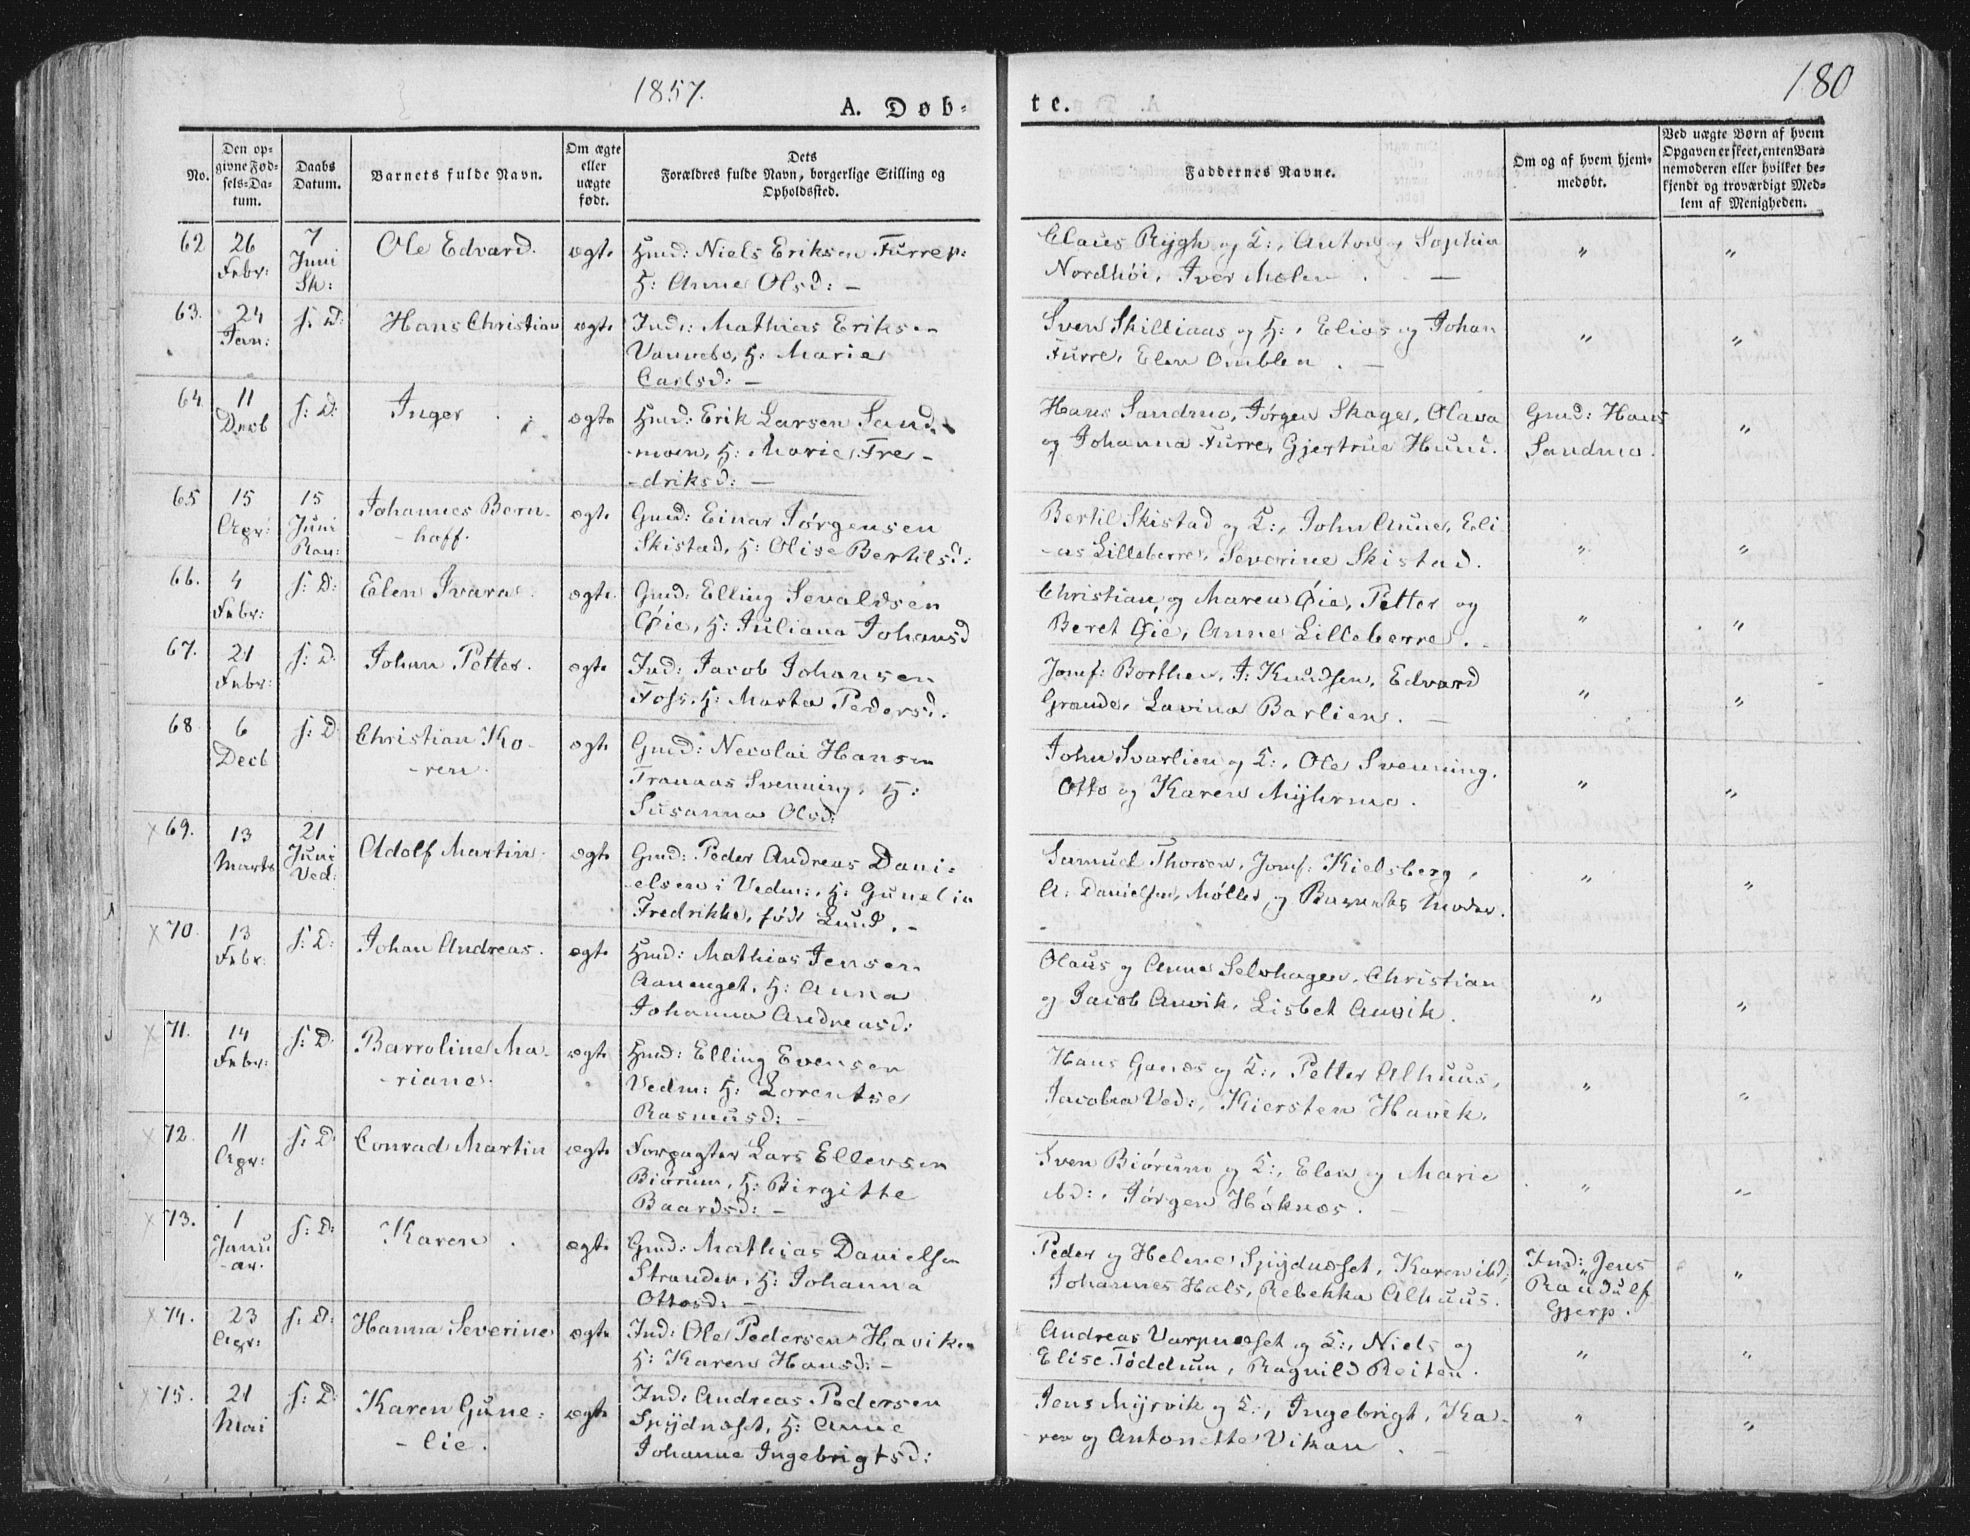 1857.
180
A. Døb-
te.
No.
Den op-
givne Fød-
sels-Da-
tum.
Daabs
Datum.
Barnets fulde Navn.
Om ægte
eller
uægte
født.
Dets
Forældres fulde Navn, borgerlige Stilling og
Opholdssted.
Faddernes Navne.
Om og af hvem hjem-
medøbt.
Ved uægte Børn af hvem
Opgaven er skeet, enten Bar-
nemoderen eller hvilket be-
kjendt og troværdigt Med-
lem af Menigheden.
62
26
Febr:
7
Juni
Sk:
Ole Edvard.
ægte
Hmd: Niels Eriksen Furrep:
H: Anne Olsd: —
Claus Rygh og K:, Anton og Sophia
Nordhöi, Iver Melen . —
"
"
63.
24
Jan:
s: D:
Hans Christian
ægte
Ind: Mathias Eriksen
Vannebo, H: Marie
Carlsd: —
Sven Skilliaas og H:, Elias og Johan
Furre, Elen Amblen . —
"
"
64.
11
Decb
s: D:
Inger .
ægte
Hmd: Erik Larsen Sand-
-moen, H: Marie Fre-
-driksd: —
Hans Sandmo, Jørgen Skage, Olava
og Johanna Furre, Gjertrue Hund.
Gmd: Hans
Sandmo.
"
65
15
Apr:
15
Juni
Ran:
Johannes Bern-
-hoff.
ægte
Gmd: Einar Jørgensen
Skistad, H: Olise Bertilsd:
Bertil Skistad og K:, John Aune, Eli-
-as Lilleberre, Severine Skistad.
"
"
66.
4
Febr:
s: D:
Elen Ivara.
ægte
Gmd: Elling Sevaldsen
Øie, H: Juliana Johansd
Christian og Maren Øie, Petter og
Beret Øie, Anne Lilleberre.
"
"
67.
21
Febr:
s: D.
Johan Petter.
ægte
Ind: Jacob Johansen
Foss, H: Marta Pedersd.
Jomf: Borthen, J: Knudsen, Edvard
Grande, Lavina Barlien. —
"
"
68
6
Decb
s: D.
Christian Ko-
-ren.
ægte
Gmd: Necolai Hansen
Tranaas Svenning, H:
Susanna Olsd:
John Svarlien og K:, Ole Svenning,
Otto og Karen Myhrmo.
"
"
x 69.
13
Marts
21
Juni
Ved:
Adolf Martin.
ægte
Gmd: Peder Andreas Dani-
-elsen i Vedm:, H: Gunelia
Fredrikke, født Lund. -
Samuel Thorsen, Jomf: Kielsberg,
A: Danielsen, Möller, og Barnets Moder.
"
"
x 70.
13
Febr:
s: D:
Johan Andreas.
ægte
Hmd: Mathias Jensen
Aavenget, H: Anna
Johanna Andreasd:
Olaus og Anne Selvhagen, Christian
og Jacob Auvik, Lisbet Auvik.
"
"
x 71.
14
Febr:
s: D.
Barroline Ma-
-riane.
ægte
Hmd: Elling Evensen
Vedm: H: Lorentse
Rasmusd: —
Hans Ganæs og K:, Petter Alhuus,
Jacobia Ved:, Kiersten Havik.
"
"
x 72.
11
Apr:
s: D.
Conrad Martin
ægte
Forpagter Lars Ellevsen
Biørum, H: Birgitte
Baardsd: —
Sven Biørum og K:, Elen og Marie
ibd:, Jørgen Höknæs.
"
"
x 73.
1
Janu
-ar.
s: D:
Karen .
ægte
Gmd: Mathias Danielsen
Stranden, H: Johanna
Ottosd: —
Peder og Helene Spydnæset, Karen ibd,
Johannes Hals, Rebekka Alhuus.
Ind: Jens
Randulf
Gjerp.
"
x 74.
23
Apr:
s: D:
Hanna Severine
ægte
Ind: Ole Pedersen Haviken
H: Karen Hansd: —
Andreas Varpnæset og K:, Niels og
Elise Töddum, Ragnild Reiten.
"
"
x 75.
21
Mai
s: D:
Karen Gune-
-lie.
ægte
Ind: Andreas Pedersen
Spydnæset, H: Anne
Johanne Ingebrigtsd:
Jens Myrvik og K:, Ingebrigt, Ka-
-ren og Antonette Vikan . —
"
"